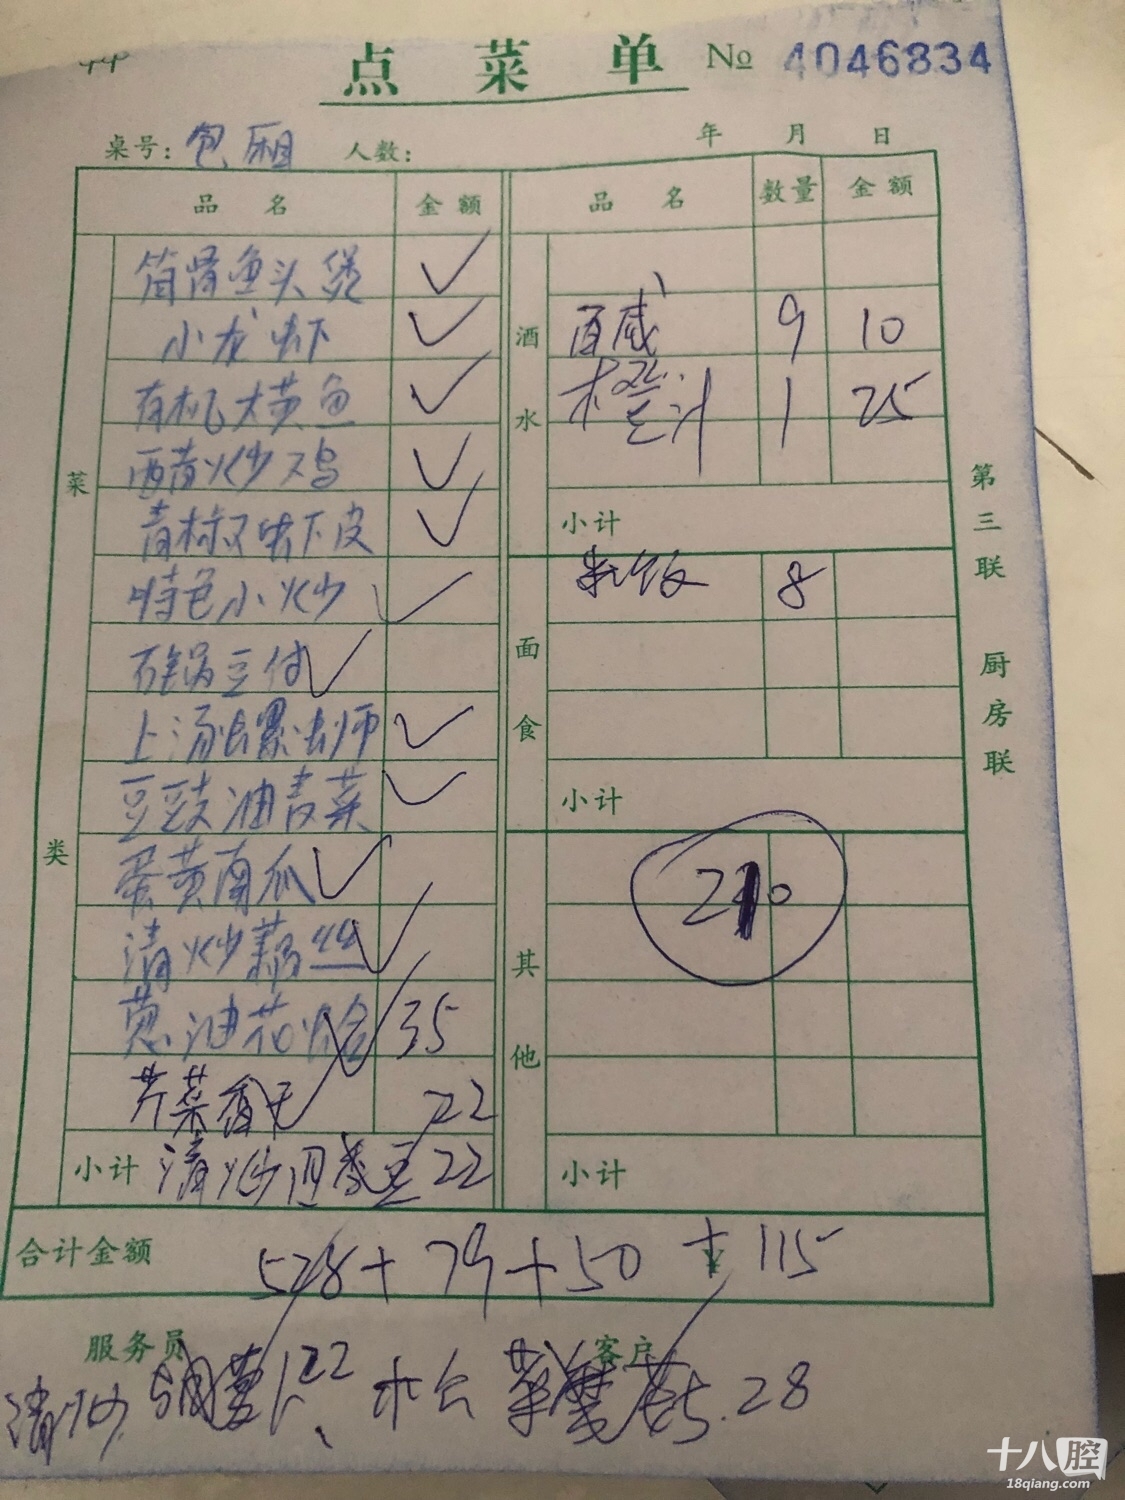 点菜单 No 4046834
桌号: 包厢 人数: 年 月 日
品名 金额 品名 数量 金额
菜类
筒骨鱼头煲
小龙虾
有机大黄鱼
西芹炒
青椒 虾皮
特色小炒
石锅豆付
上汤螺蛳
豆豉油麦菜
蛋黄南瓜
清炒藕丝
葱油花蛤 35
芹菜香干 22
小计 清炒四季豆 22
酒水
百威 9 10
橙汁 1 25
小计
面食
米饭 8
小计
其他
210
小计
合计金额 528+79+50 + ¥ 115
服务员 客户
清炒 胡萝卜 22 28
第三联 厨房联
十八腔
18qiang.com